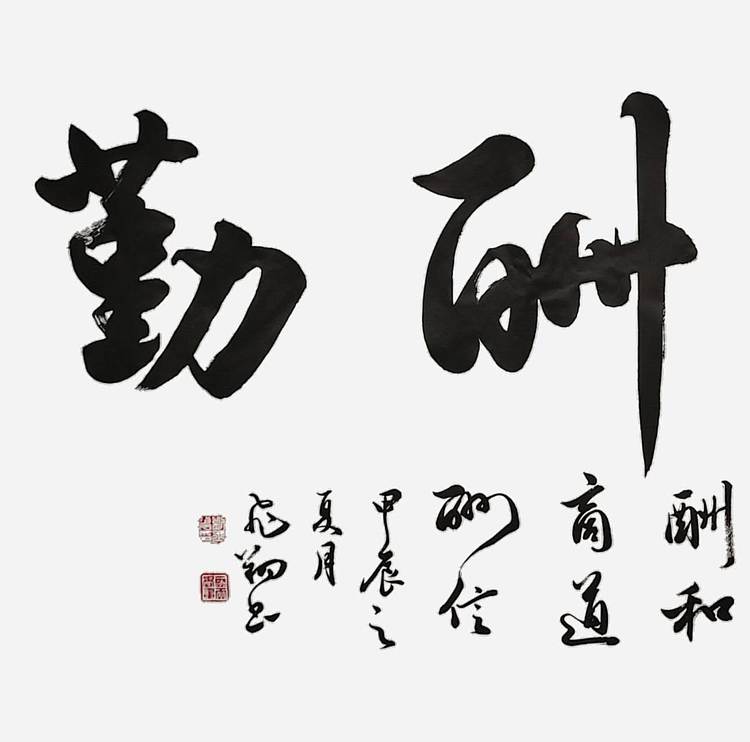 酬勤
酬和
商道
酬信
甲辰之
夏月
飛翔書